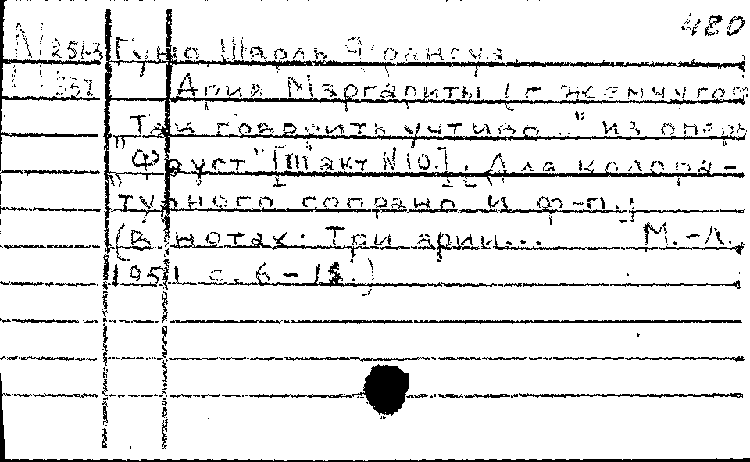 480
N 2513 Гуно Шарль Франсуа
357 Ария Маргариты (с жемчугом
"Так говорить учтиво..." из оперы
"Фауст" [III акт N 10]. (Для колора-
турного сопрано и ф-п.)
(В нотах: Три арии... М.-Л.,
1951 с. 6-